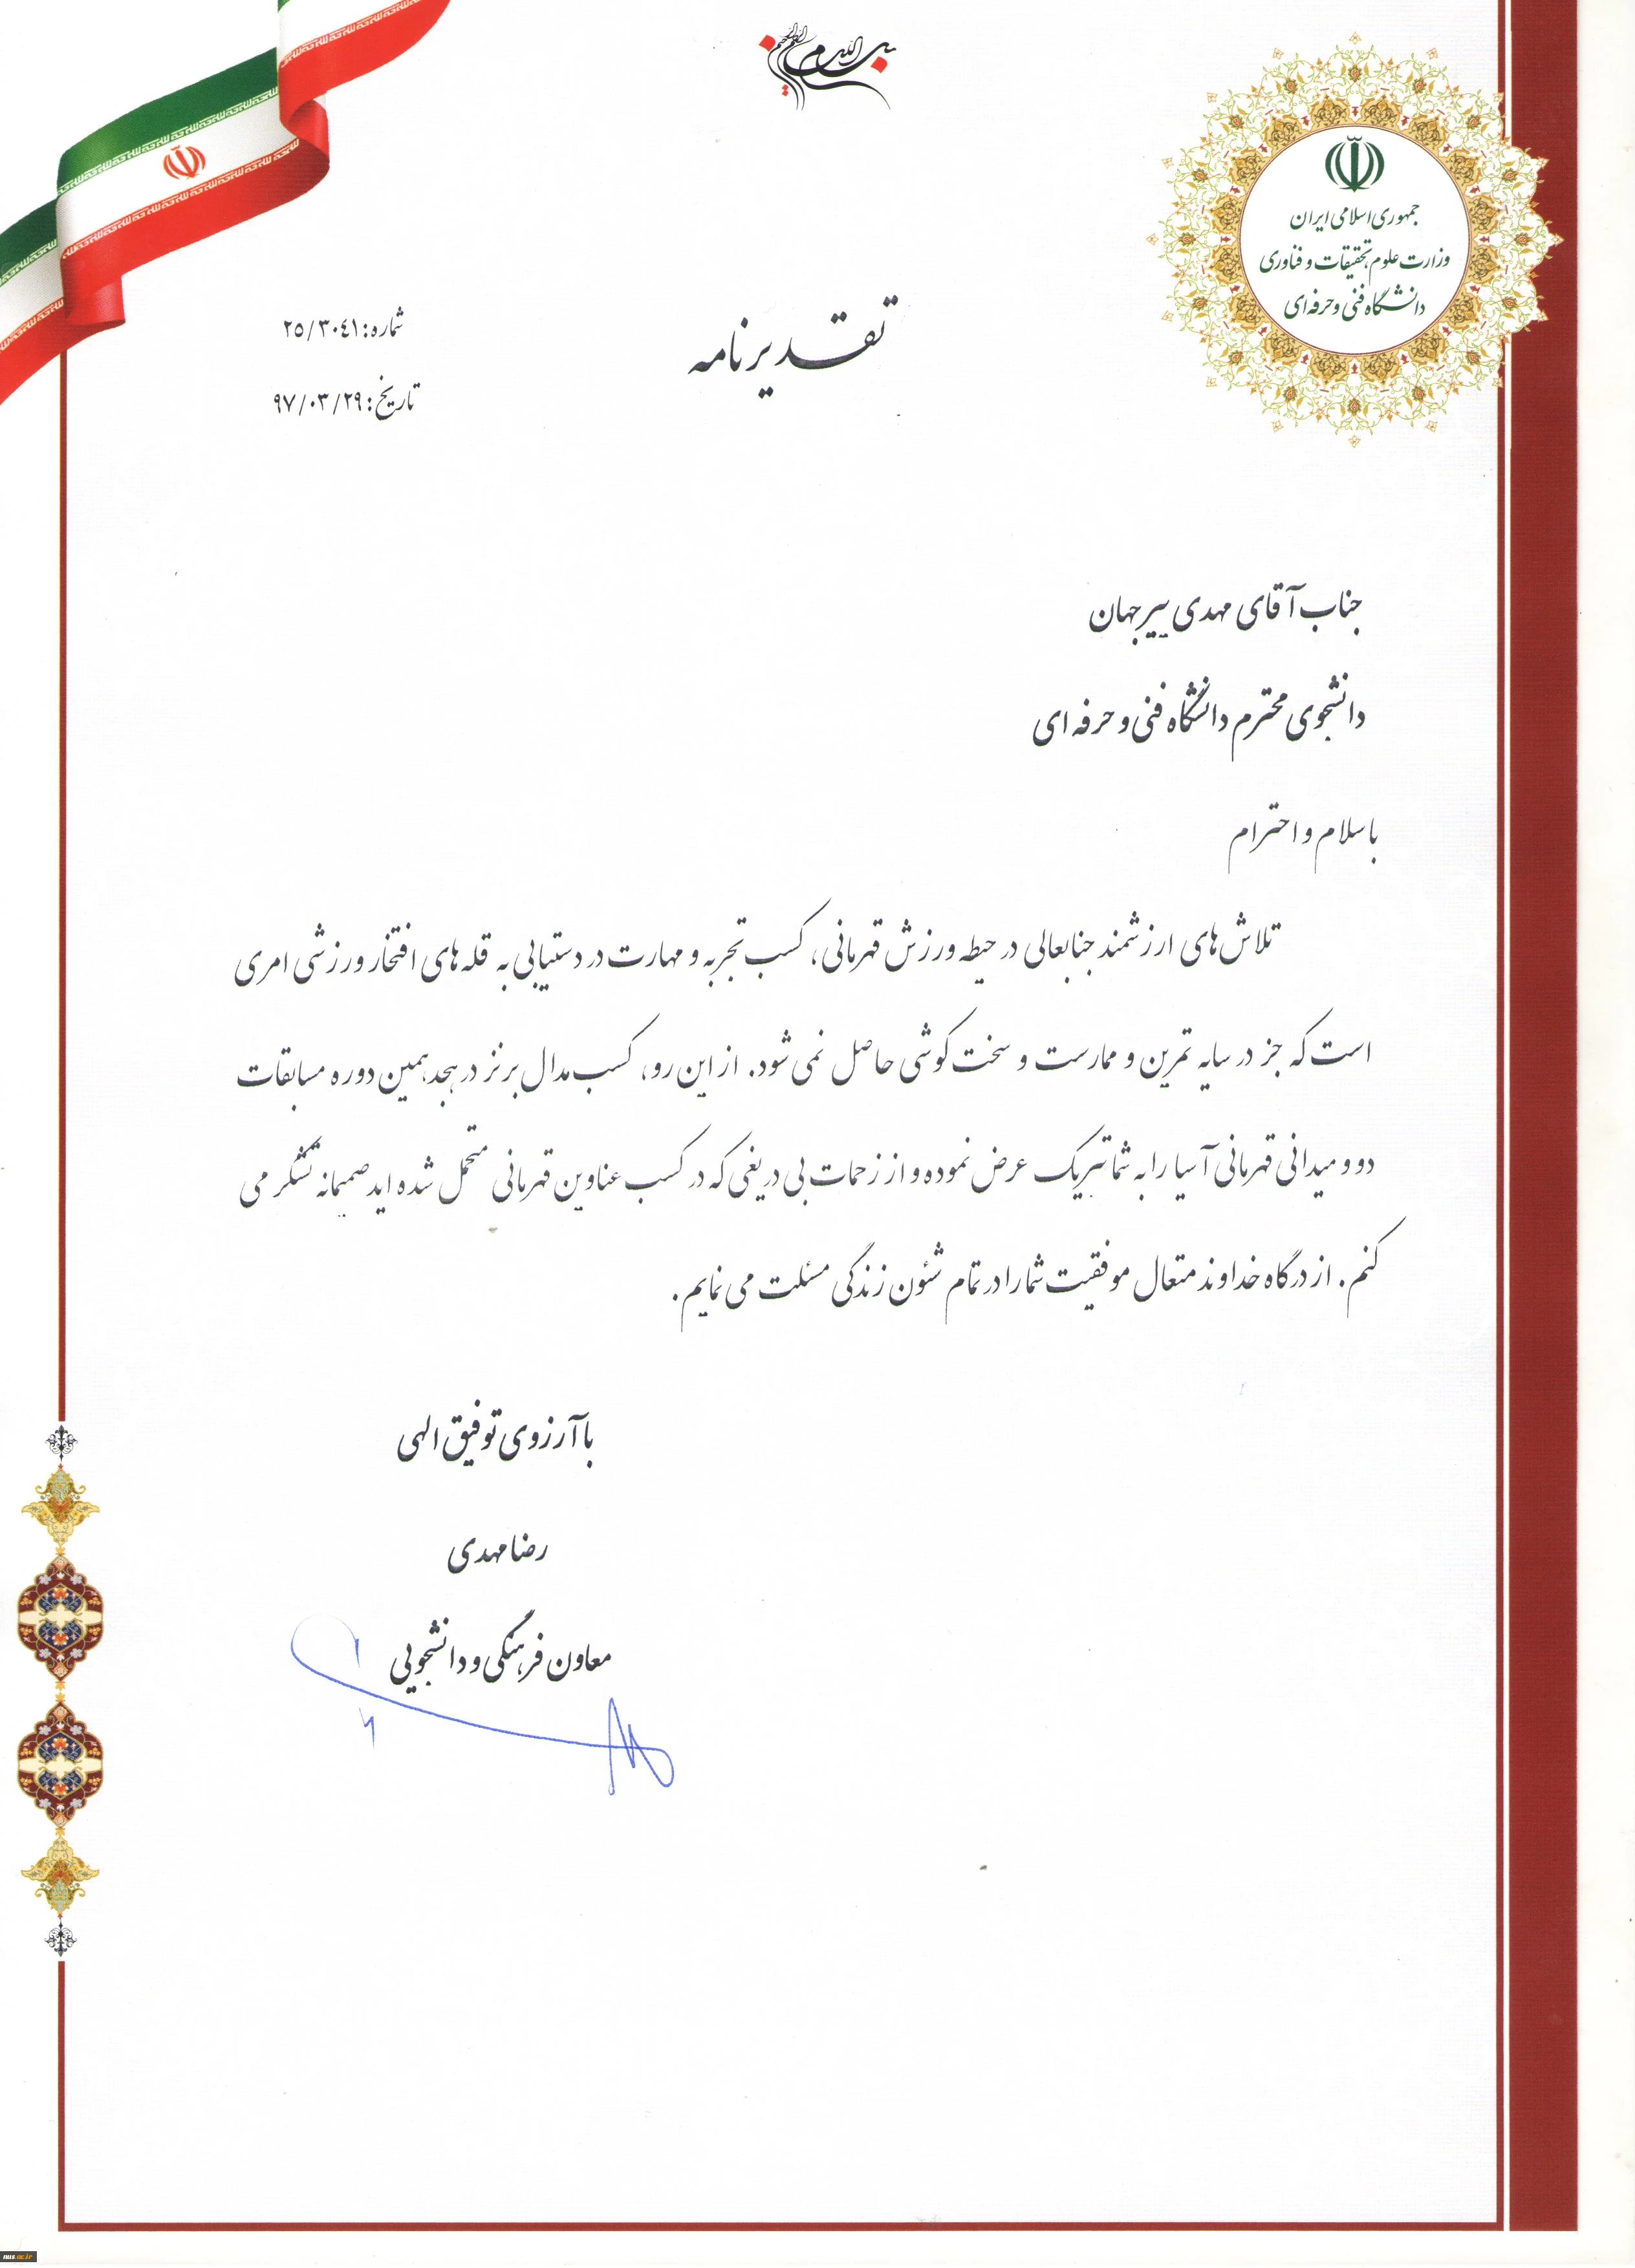 بسم الله الرحمن الرحیم
جمهوری اسلامی ایران
وزارت علوم، تحقیقات و فناوری
دانشگاه فنی و حرفه ای
تقدیرنامه
شماره: ۲۵/۳۰۴۱
تاریخ: ۹۷/۰۳/۲۹
جناب آقای مهدی پیرجهان
دانشجوی محترم دانشگاه فنی و حرفه ای
با سلام و احترام
تلاش های ارزشمند جنابعالی در حیطه ورزش قهرمانی، کسب تجربه و مهارت در دستیابی به قله های افتخار ورزشی امری
است که جز در سایه تمرین و ممارست و سخت کوشی حاصل نمی شود. از این رو، کسب مدال برنز در هجدهمین دوره مسابقات
دو و میدانی قهرمانی آسیا را به شما تبریک عرض نموده و از زحمات بی دریغی که در کسب عناوین قهرمانی متحمل شده اید صمیمانه تشکر می
کنم. از درگاه خداوند متعال موفقیت شما را در تمام شئون زندگی مسئلت می نمایم.
با آرزوی توفیق الهی
رضا مهدی
معاون فرهنگی و دانشجویی
nus.ac.ir